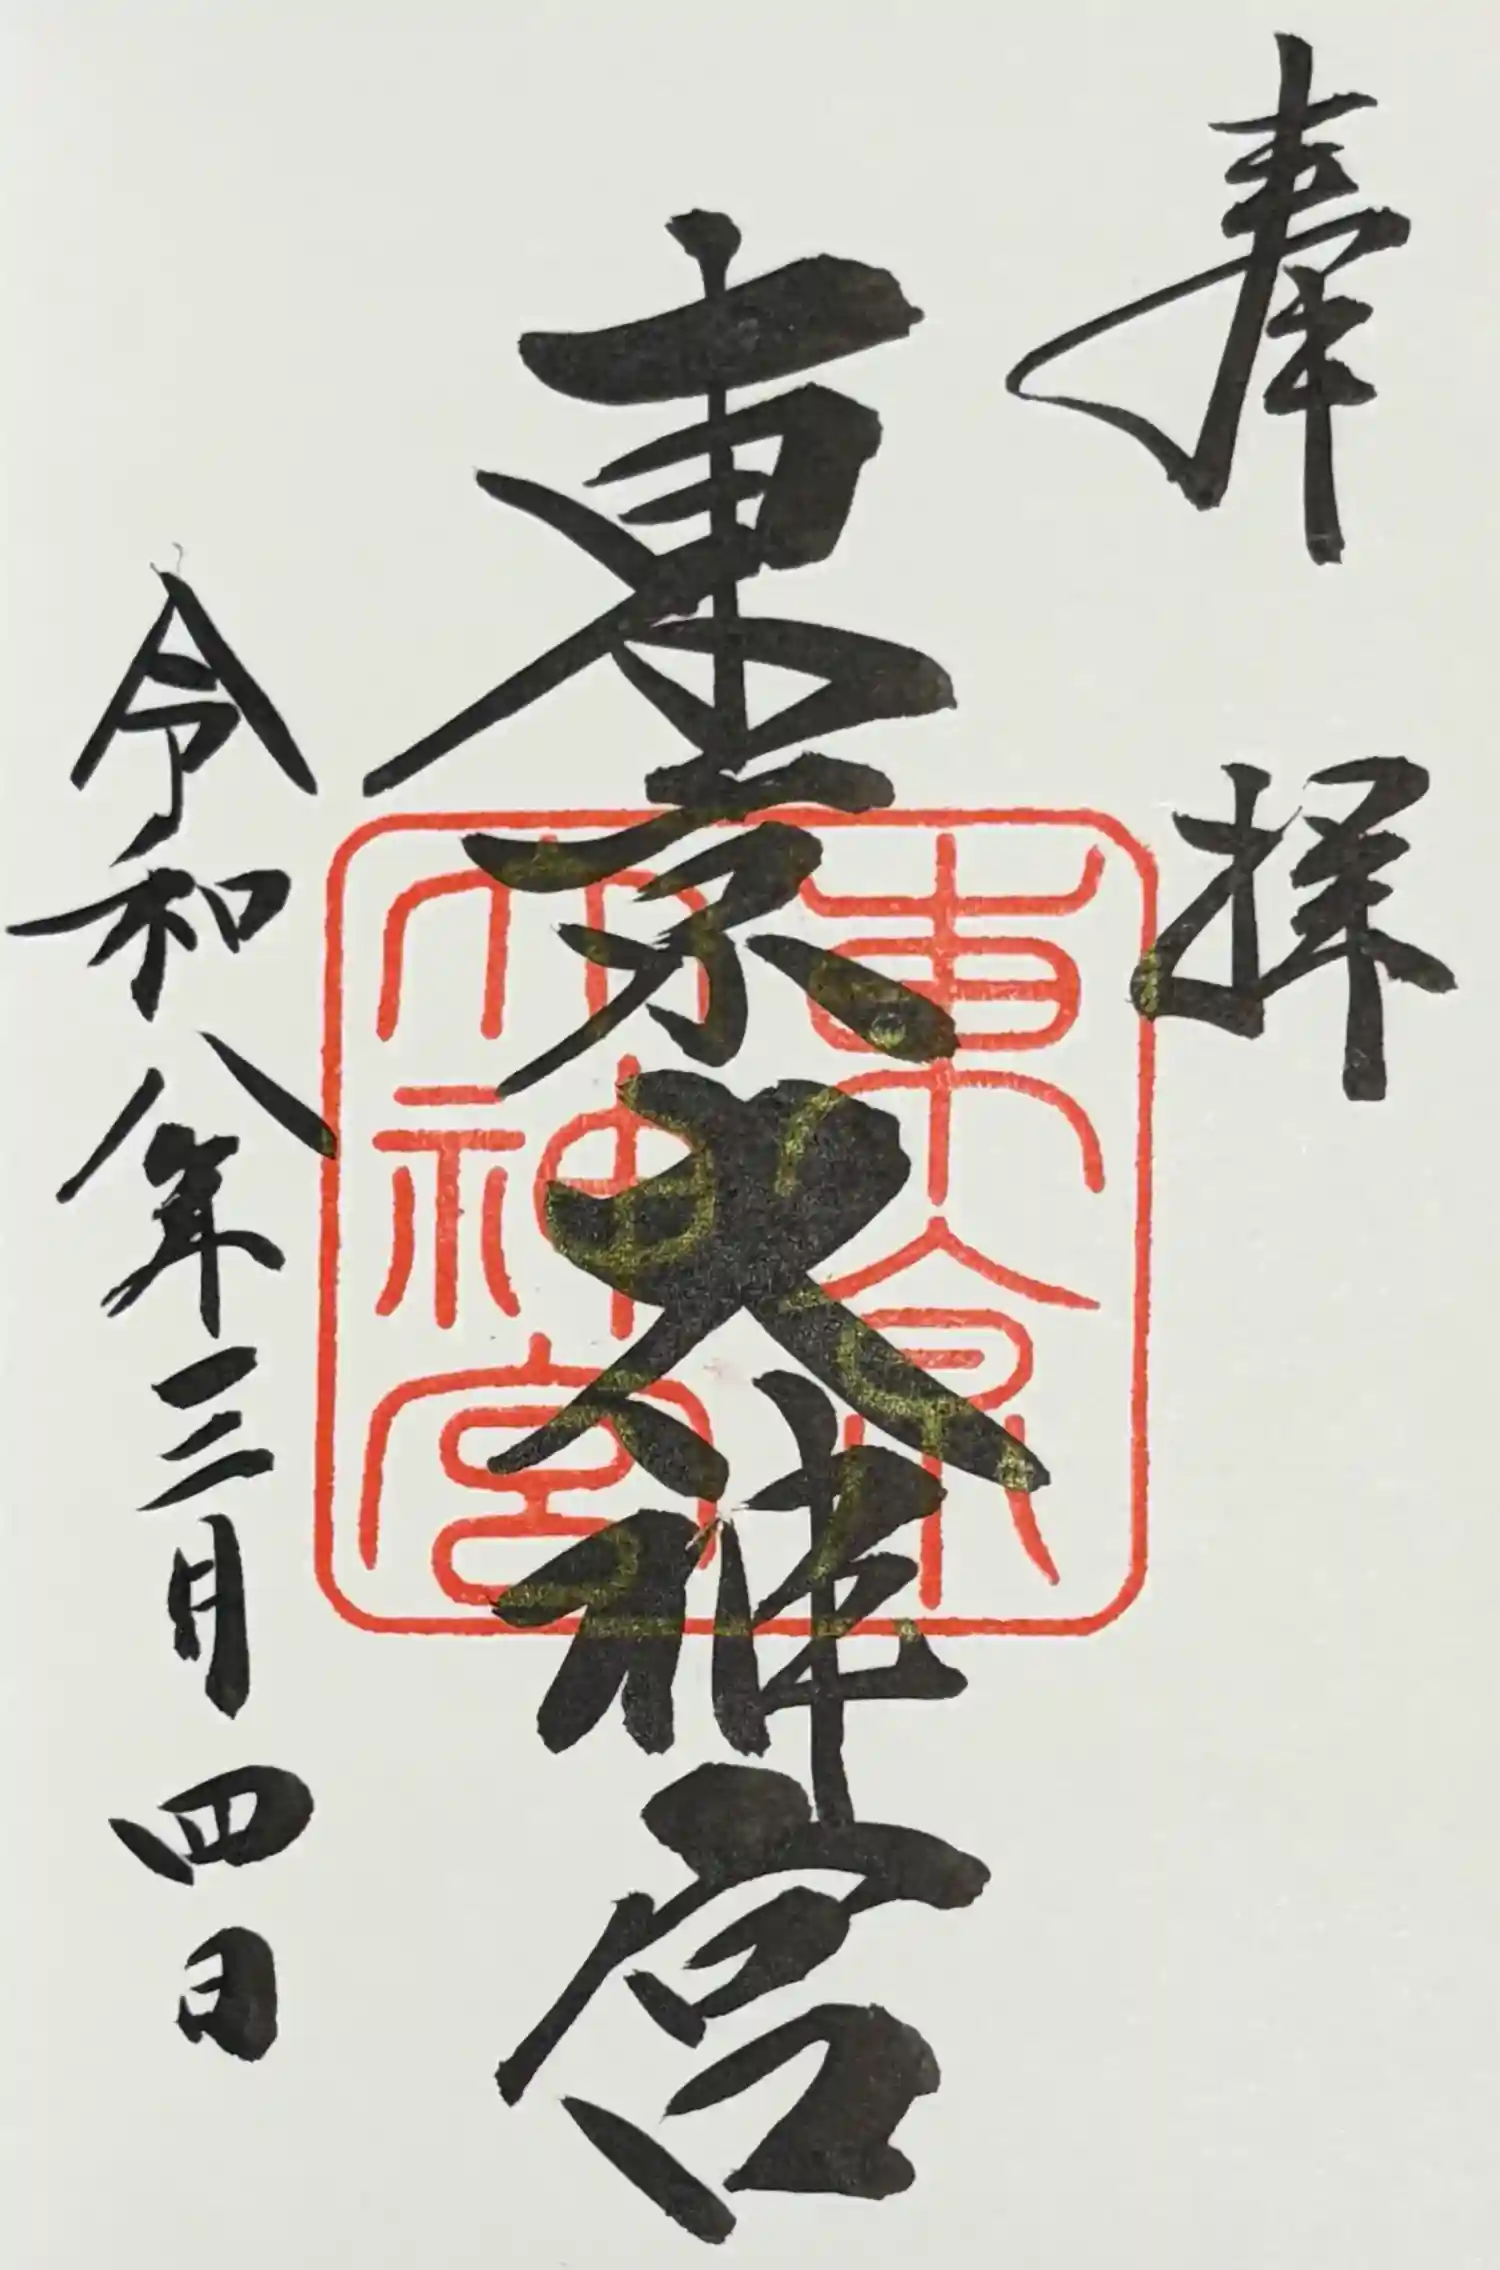 奉拝
東京大神宮
東京
大神宮
令和八年三月四日